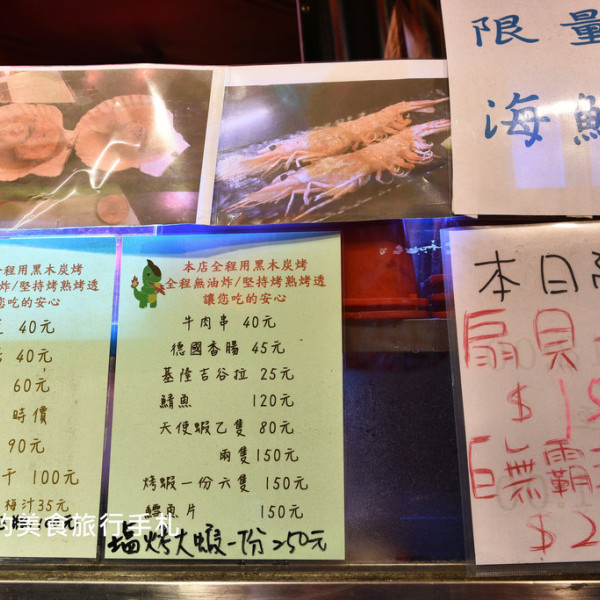 限量
海鮮
全程用黑木炭烤
炸/堅持烤熟烤透
您吃的安心
40元
40元
60元
時價
90元
干 100元
梅汁35元
本店全程用黑木炭烤
全程無油炸/堅持烤熟烤透
讓您吃的安心
牛肉串 40元
德國香腸 45元
基隆吉谷拉 25元
鯖魚 120元
天使蝦乙隻 80元
兩隻150元
烤蝦一份六隻 150元
鱈魚片 150元
塩烤大蝦一份250元
本日
扇貝
$1
$2
的美食旅行手札